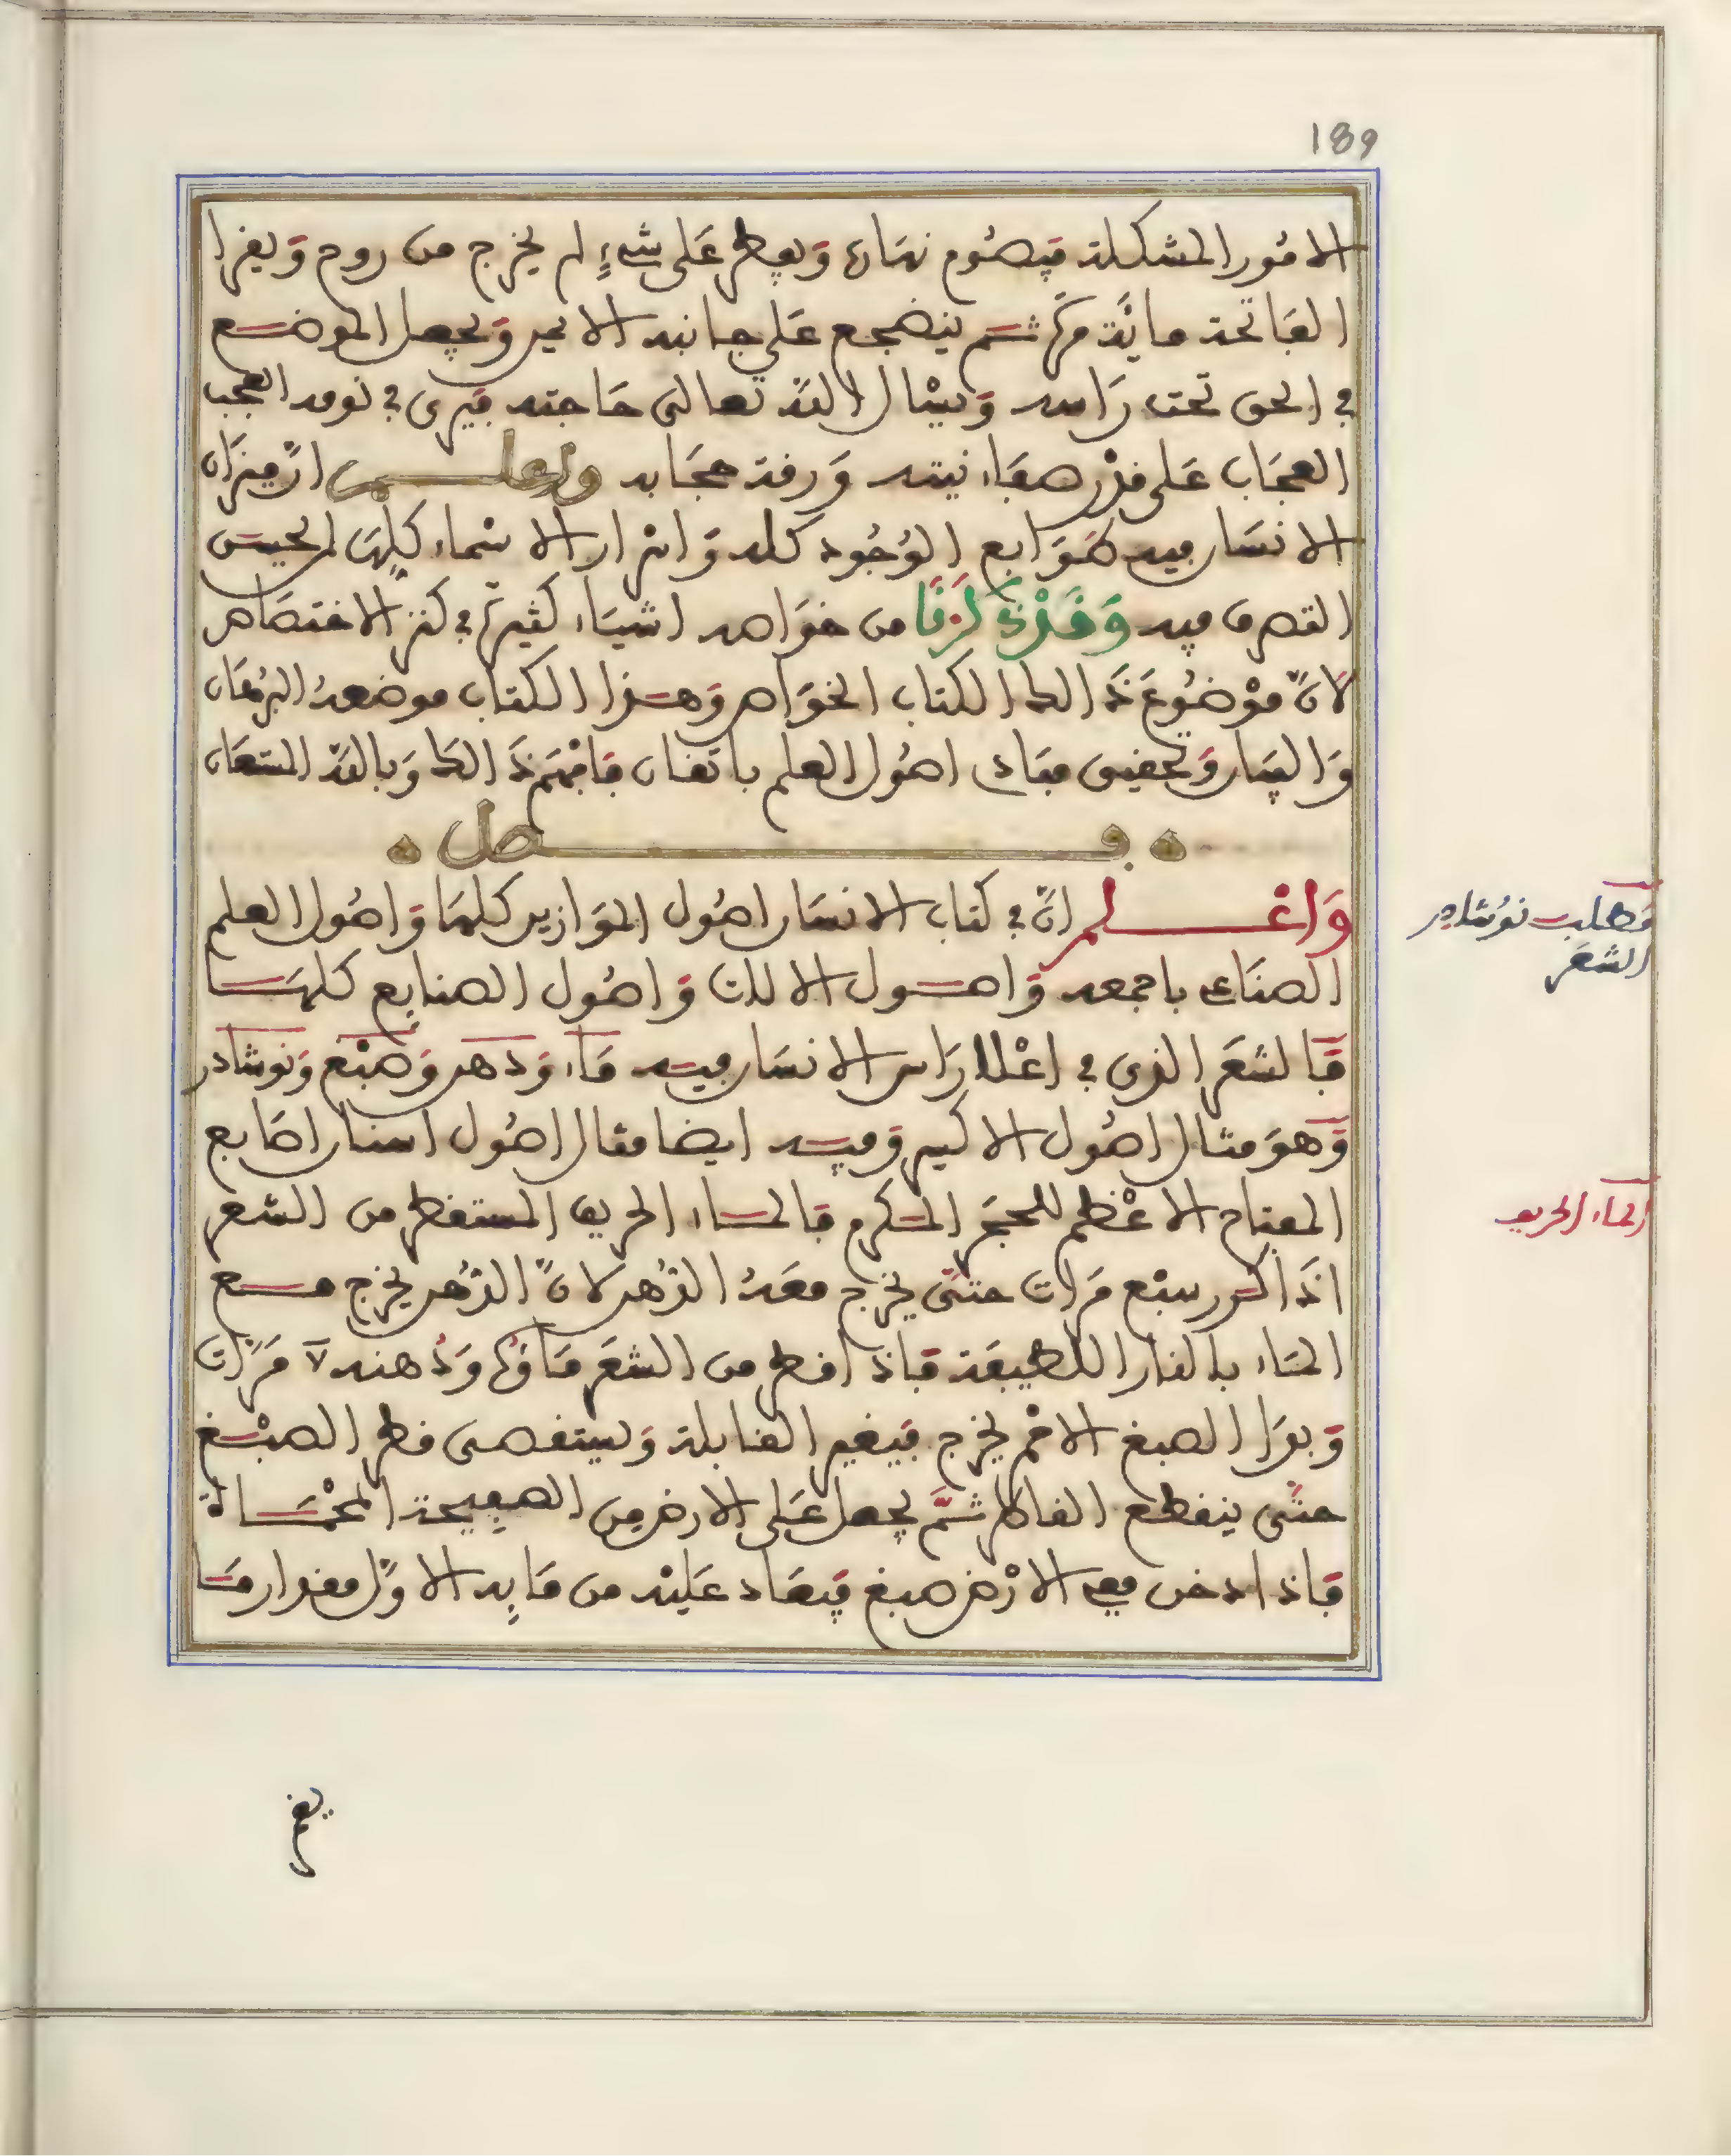 189
الامور المشكلة فيصوم نهاره ويفطر على شيء لم يخرج من روح ويقرا
الفاتحة مائة مرة ثم ينضجع على جانبه الايمن ويجعل الموضع
في الحق تحت راسه ويسال الله تعالى حاجته فيرى في نومه العجب
العجاب على قدر صفاء نيته ورقة حجابه واعلم ان ميزان
الانسان فيه طوابع الوجود كله واسرار الاسماء كلها لمن يحسن
التصرف فيه وقد ذكرنا من خواصه اشياء كثيرة في كنز الاختصاص
لان موضوع ذالك الكتاب الخواص وهذا الكتاب موضعه البرهان
والبيان وتحقيق مبادي اصول العلم باتقان فافهم ذالك وبالله المستعان
فصل
واعلم ان في كتاب الانسان اصول الموازين كلها واصول العلم
الصناعي باجمعه واصول الالات واصول الصنايع كلها
فالشعر الذي في اعلا راس الانسان فيه ماء ودهن وصبغ ونوشادر
وهو مثال اصول الاكسير وفيه ايضا مثال اصول اسنان اصابع
المفتاح الاعظم للحجر المكرم فالماء الحريف المستقطر من الشعر
اذا كرر سبع مرات حتى يخرج معه الدهن لان الدهن يخرج مع
الماء بالنار اللطيفة فاذا قطر من الشعر ماؤه ودهنه ٧ مرات
وبدا الصبغ الاحمر يخرج فيغير القابلة ويستقصى قطر الصبغ
حتى ينقطع القاطر ثم يجعل على الارض من الصفيحة المحماة
فاذا دخن معه الارض صبغ فيعاد عليه من مايه الاول مقدار ما
مطلب نوشادر
الشعر
الماء الحريف
يغمر